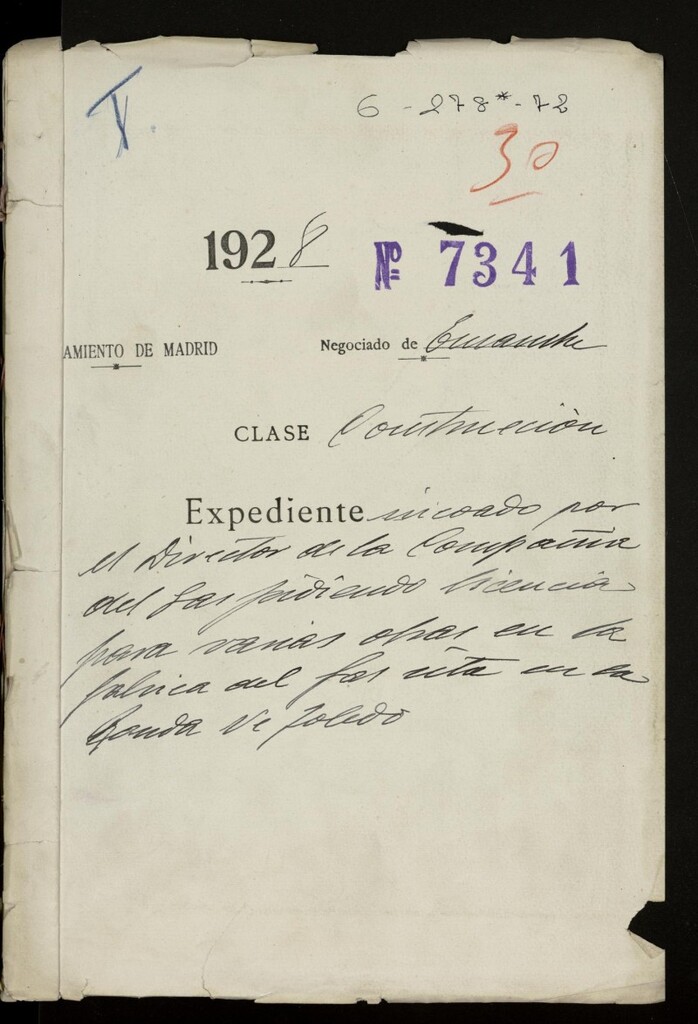 V.
6-278*-72
30
1928 Nº 7341
AMIENTO DE MADRID Negociado de Ensanche
CLASE Construcción
Expediente incoado por
el Director de la Compañia
del Gas pidiendo licencia
para varias obras en la
fabrica del gas sita en la
Ronda de Toledo